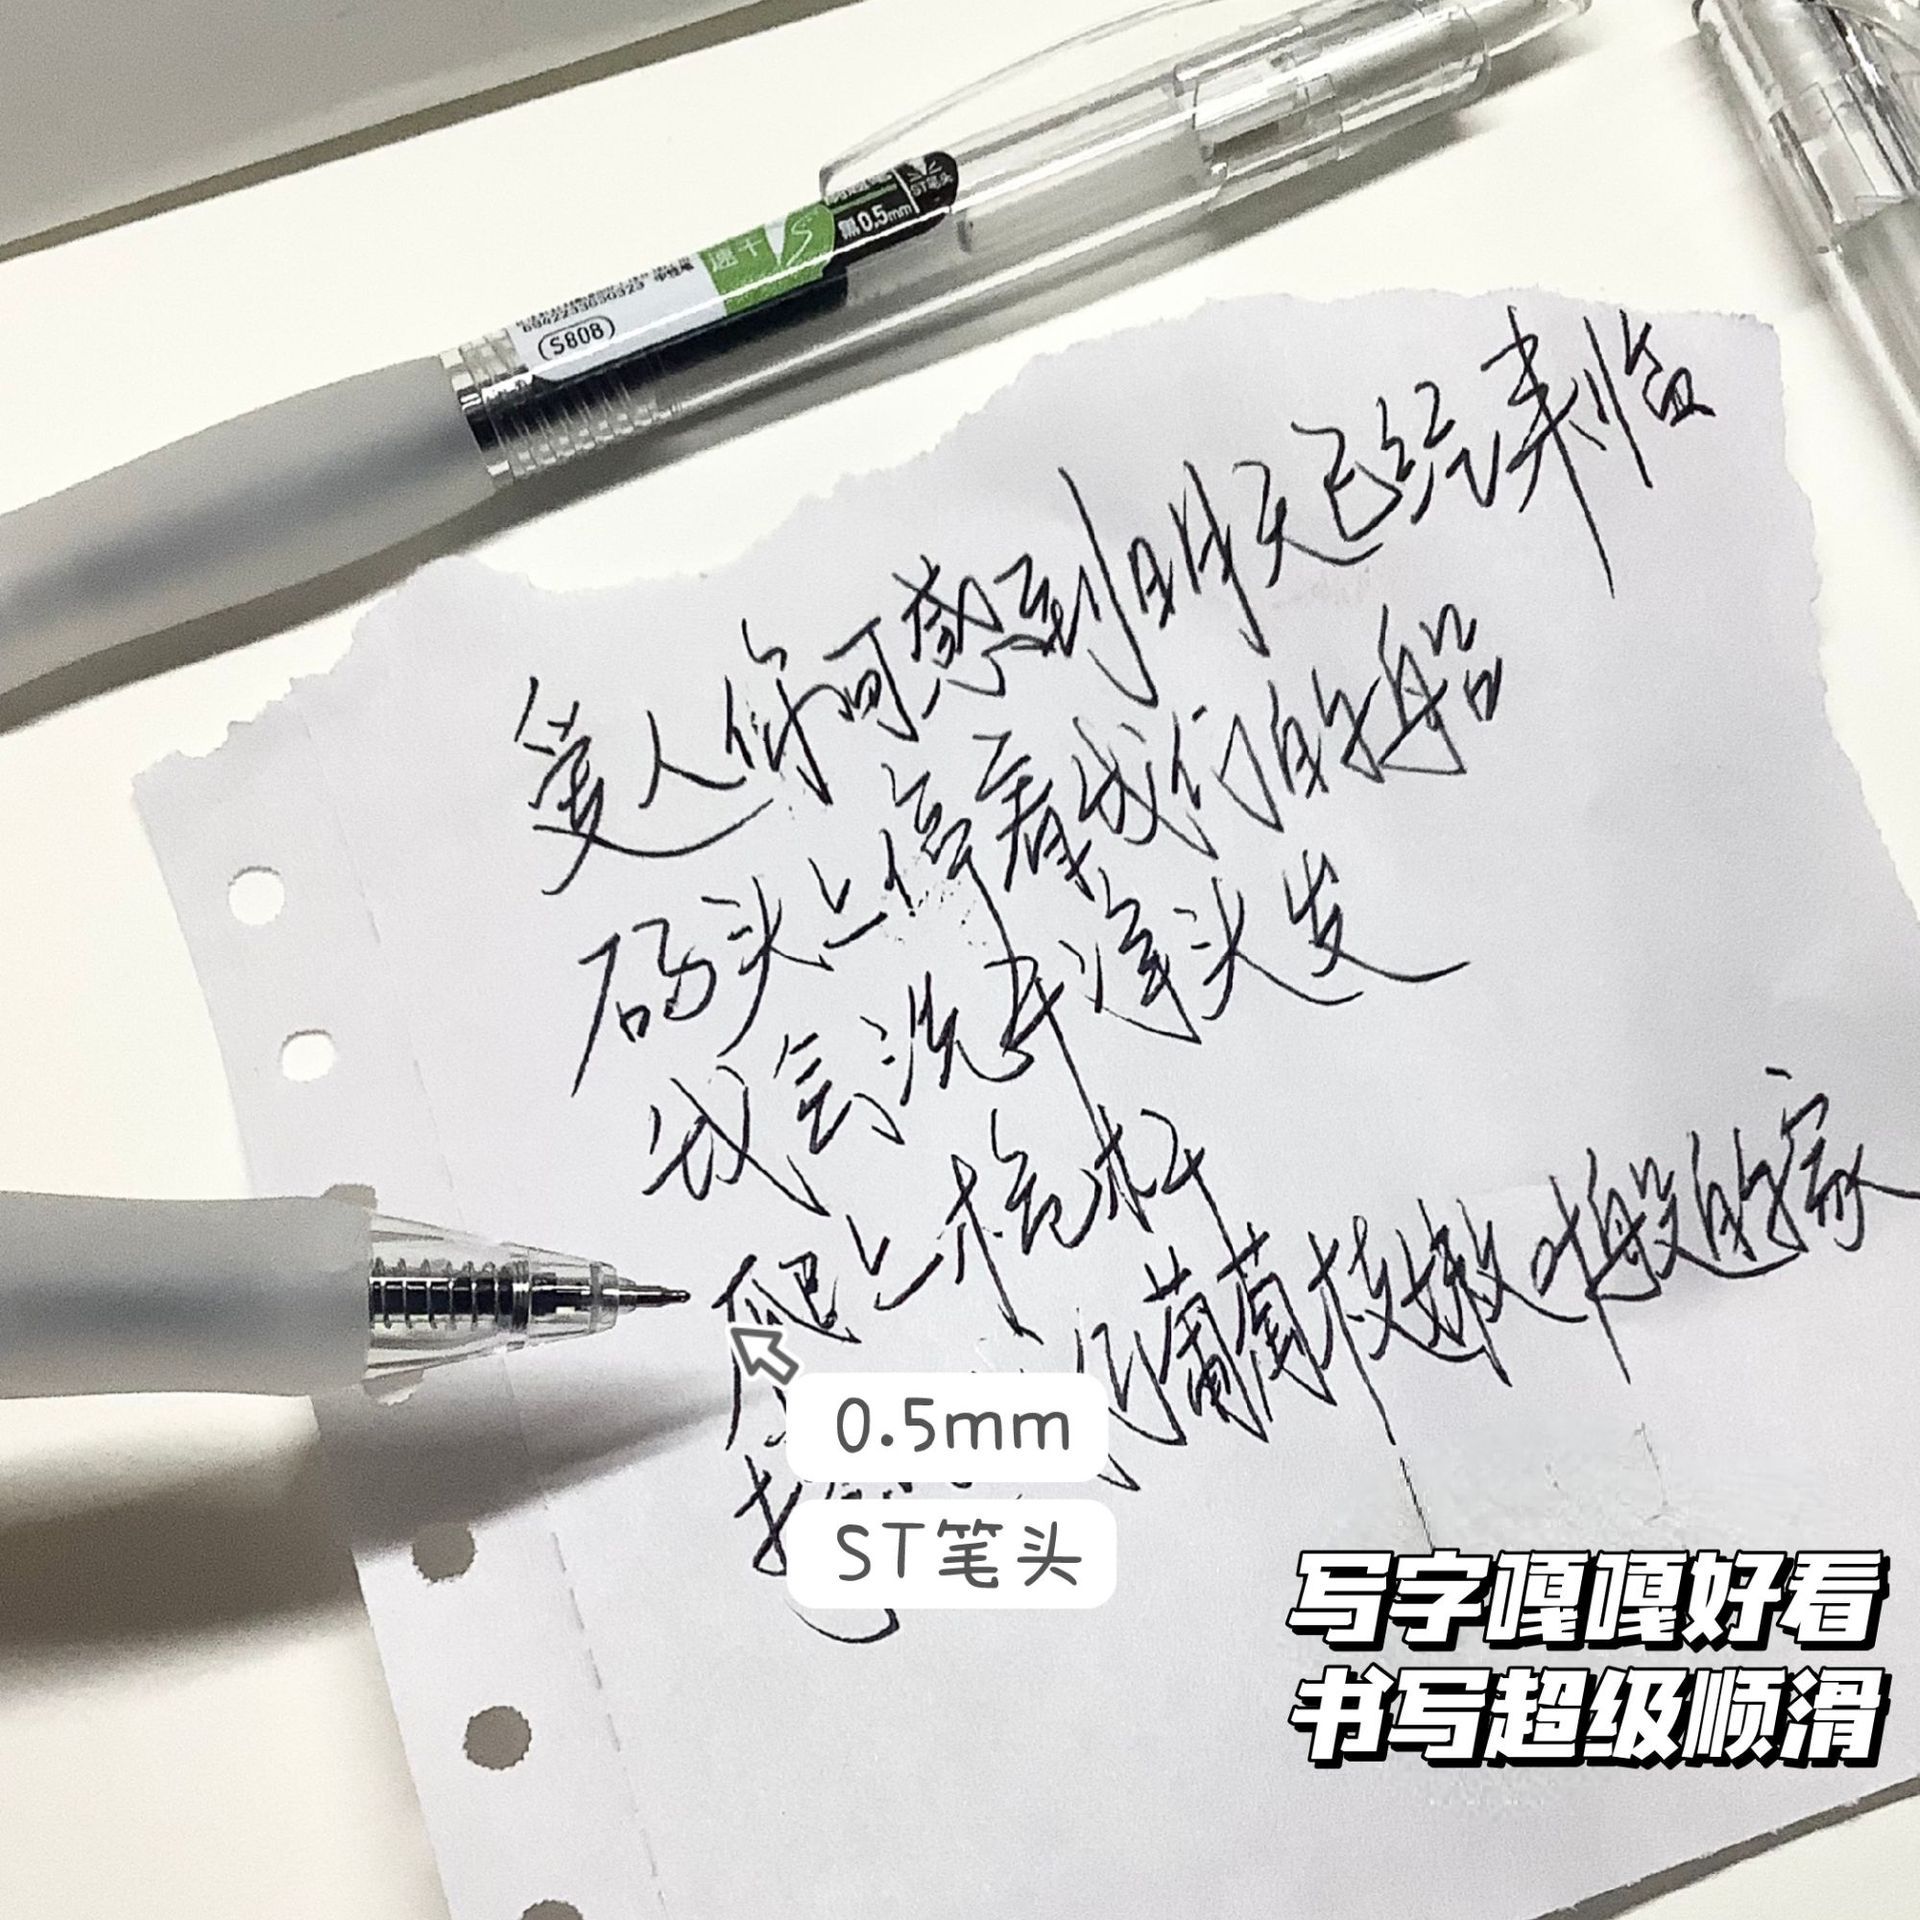 ST笔头
黑0.5mm
速干
中性笔
6942233030323
S808
爱人你可感到明天已经来临
码头上停着我们的船
我会洗干净头发
爬上桅杆
葡萄枝嫩叶般的家
0.5mm
ST笔头
写字嘎嘎好看
书写超级顺滑